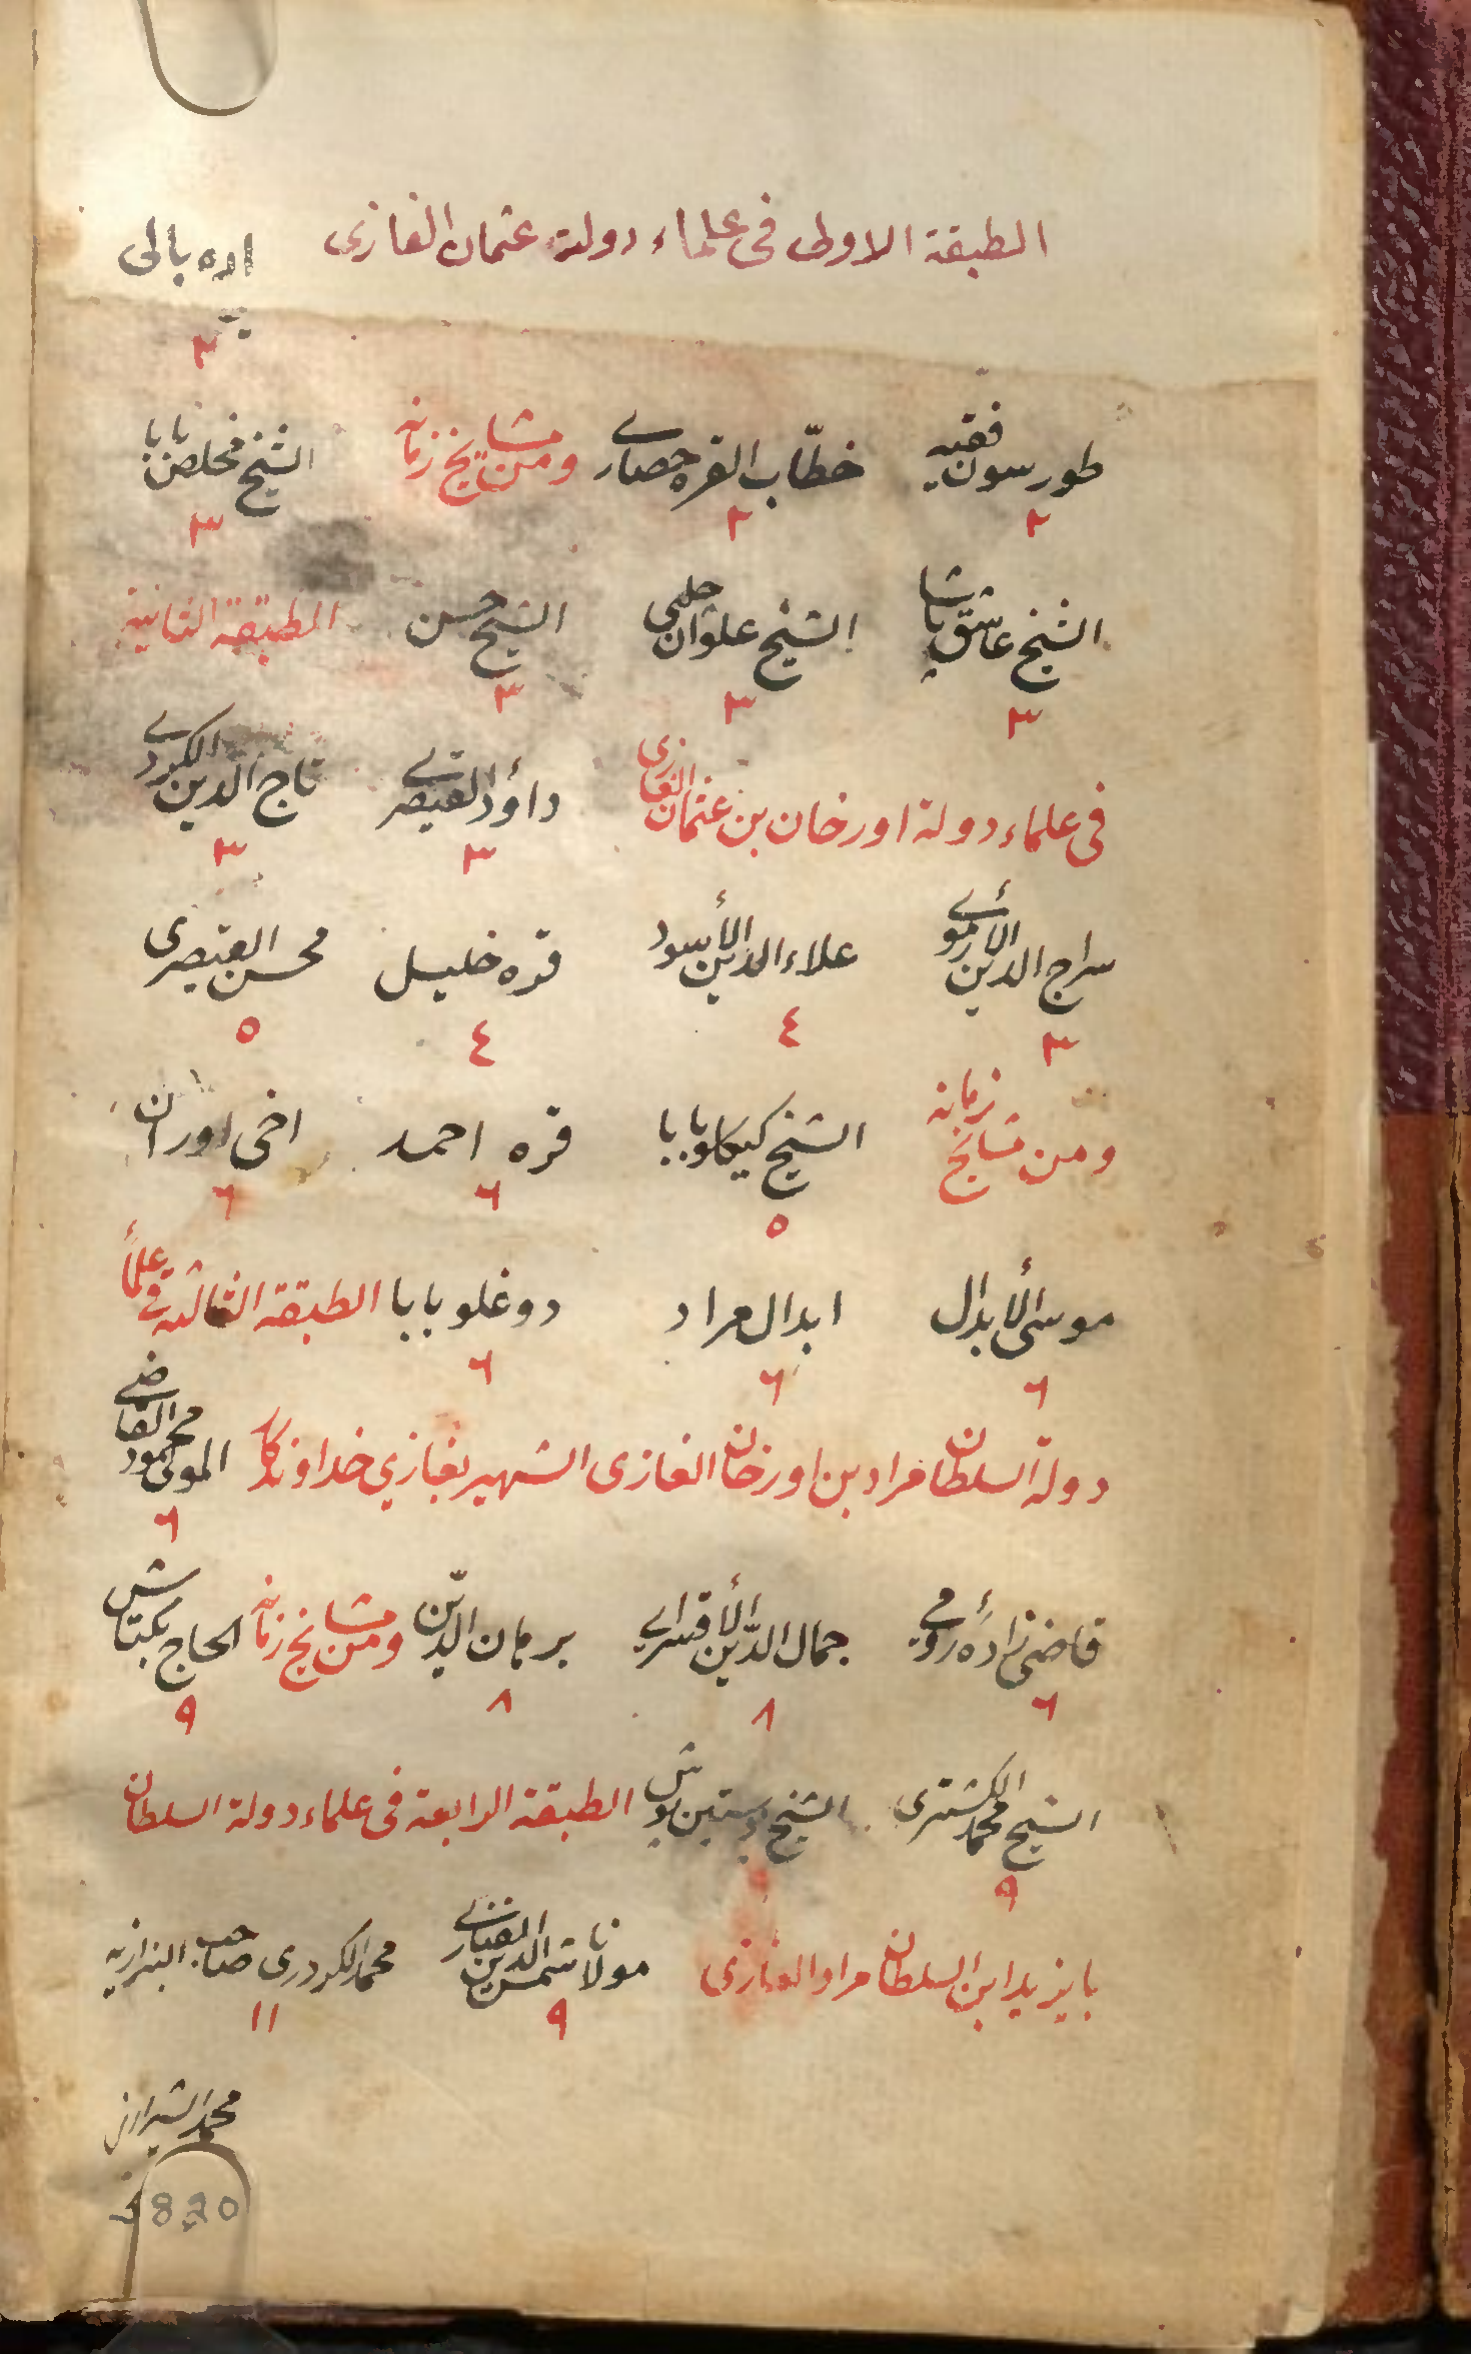 الطبقة الاولى فى علماء دولة عثمان الغازى اده بالى
٢
طورسون فقيه خطّاب القره حصارے ومن مشايخ زمانه الشيخ مخلص بابا
٢ ٢ ٣
الشيخ عاشق باشا الشيخ علوان چلبى الشيخ حسن الطبقة الثانية
٣ ٣ ٣
فى علماء دولة اورخان بن عثمان الغازى داؤد القيصرے تاج الدين الكردے
٣ ٣
سراج الدين الأرموے علاء الدين الأسود قره خليل محسن القيصرى
٣ ٤ ٤ ٥
ومن مشايخ زمانه الشيخ كيكلو بابا قره احمد اخى اوران
٥ ٦ ٦
موسى الأبدال ابدال مراد دوغلو بابا الطبقة الثالثة فى علماء
٦ ٦ ٦
دولة السلطان مراد بن اورخان الغازى الشهير بغازي خداوندكار المولى محمود القاضے
٦
قاضى زادۀ رومے جمال الدّين الأقسرايے برهان الدّين ومن مشايخ زمانه الحاج بكتاش
٦ ٨ ٨ ٩
الشيخ محمد الكشترى الشيخ پوستين پوش الطبقة الرابعة فى علماء دولة السلطان
٩ ٩
بايزيد ابن السلطان مراد الغازى مولانا شمس الدين الفنارے محمد الكردرى صاحب البزازيه
٩ ١١
محمد الشيرازى
820